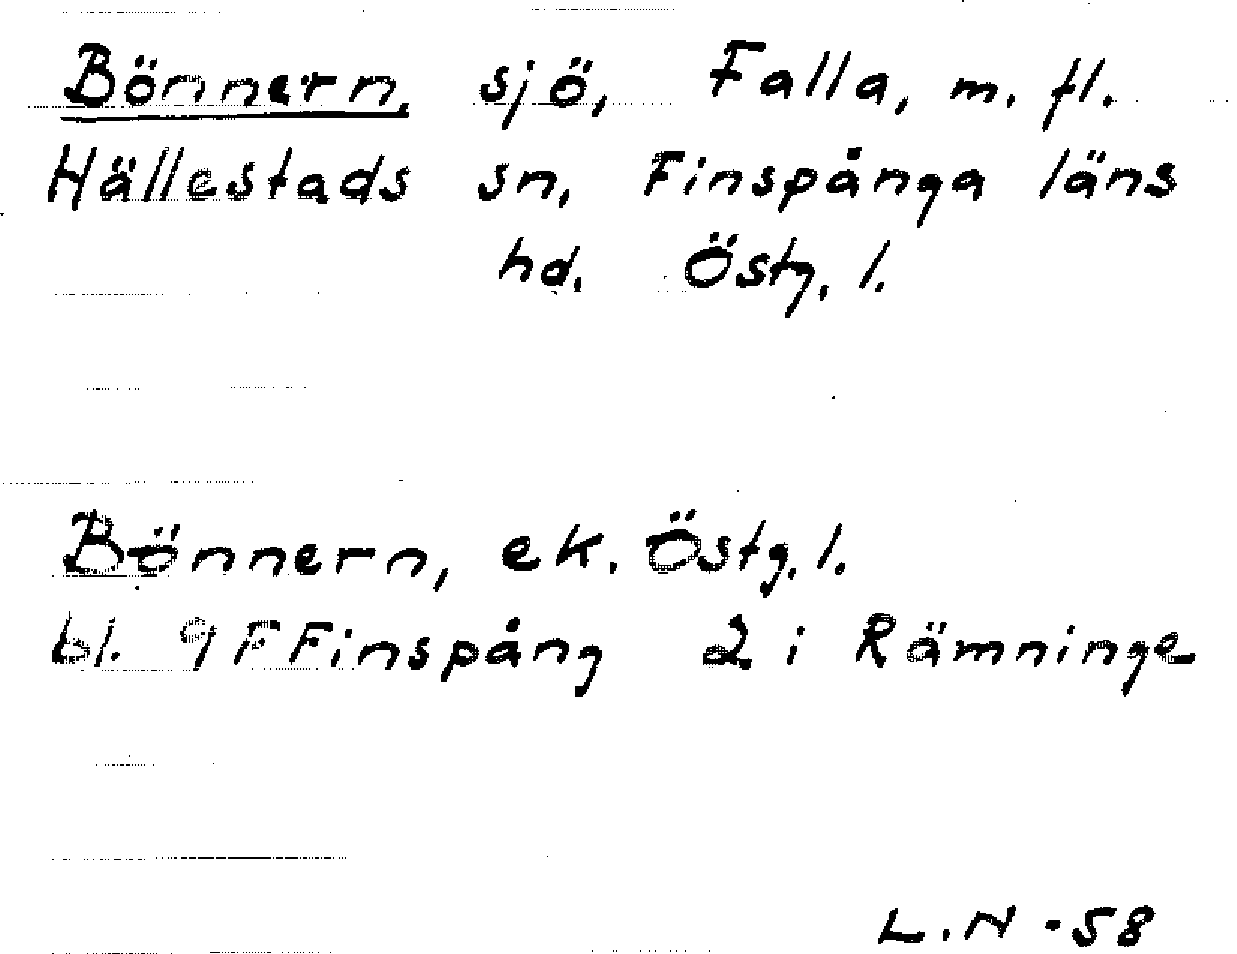 Bönnern, sjö, Falla, m. fl.
Hällestads sn, Finspånga läns
hd. Östg. l.
Bönnern, ek. Östg. l.
bl. 9 F Finspång 2 i Rämninge
L. N - 58